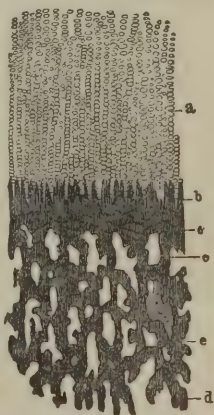 a
b
c
o
e
d